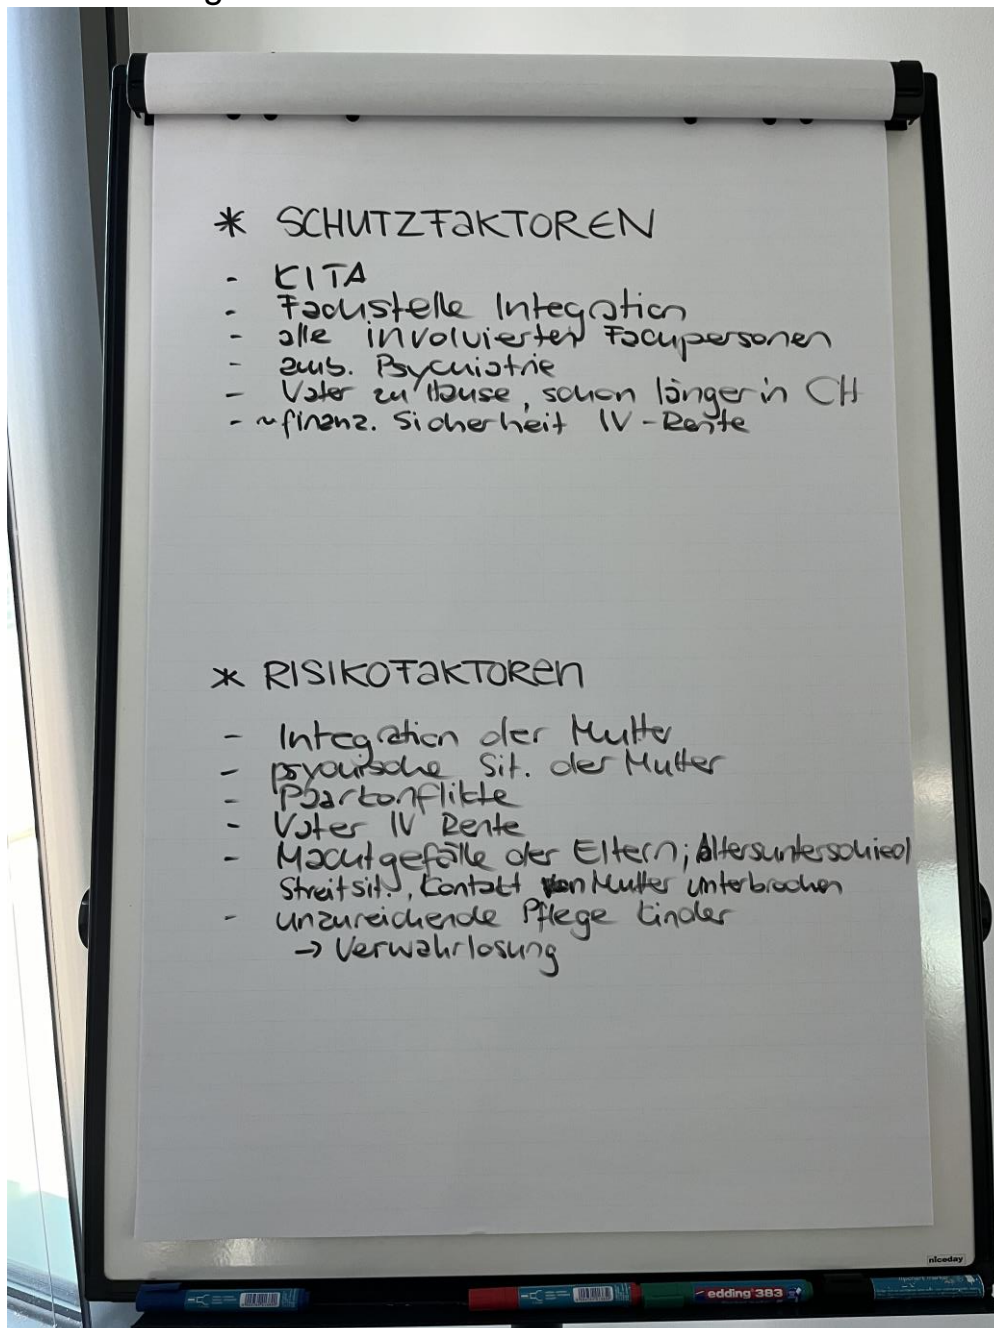 * SCHUTZFAKTOREN
- KITA
- Fachstelle Integration
- alle involvierten Fachpersonen
- amb. Psychiatrie
- Vater zu Hause, schon länger in CH
- ~finanz. Sicherheit IV-Rente
* RISIKOFAKTOREN
- Integration der Mutter
- psychische Sit. der Mutter
- Paarkonflikte
- Vater IV Rente
- Machtgefälle der Eltern; Altersunterschied
Streitsit., Kontakt von Mutter unterbrochen
- unzureichende Pflege Kinder
→ Verwahrlosung
niceday
edding 383